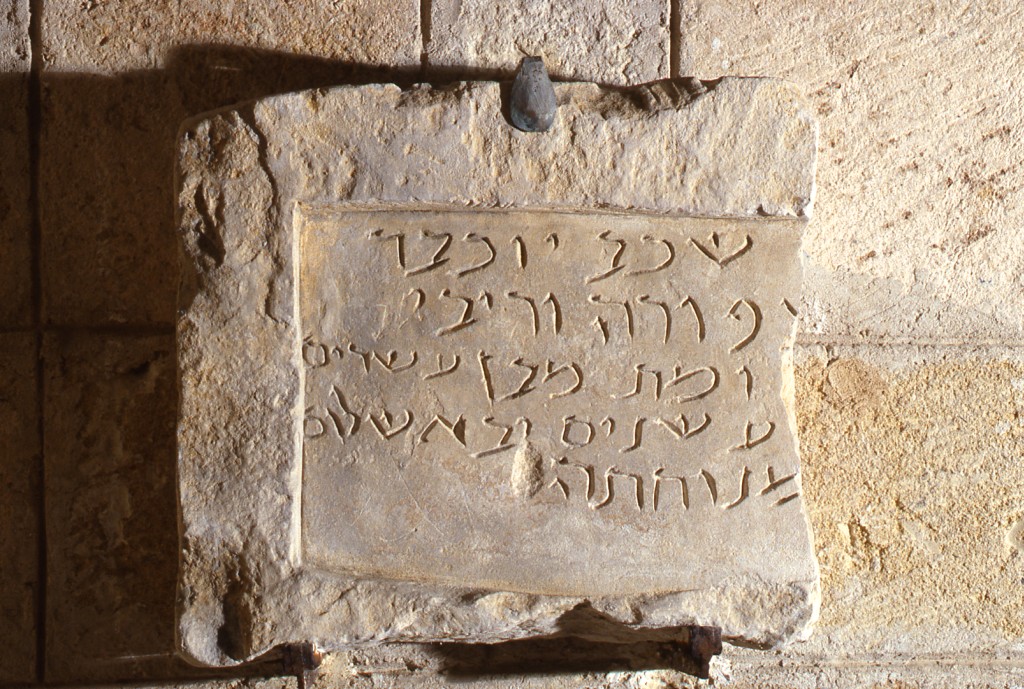 שכב יוכבד
יפורה וריבי
ומת מבן עשרים
ע שנים יבא שלום
מנוחתה